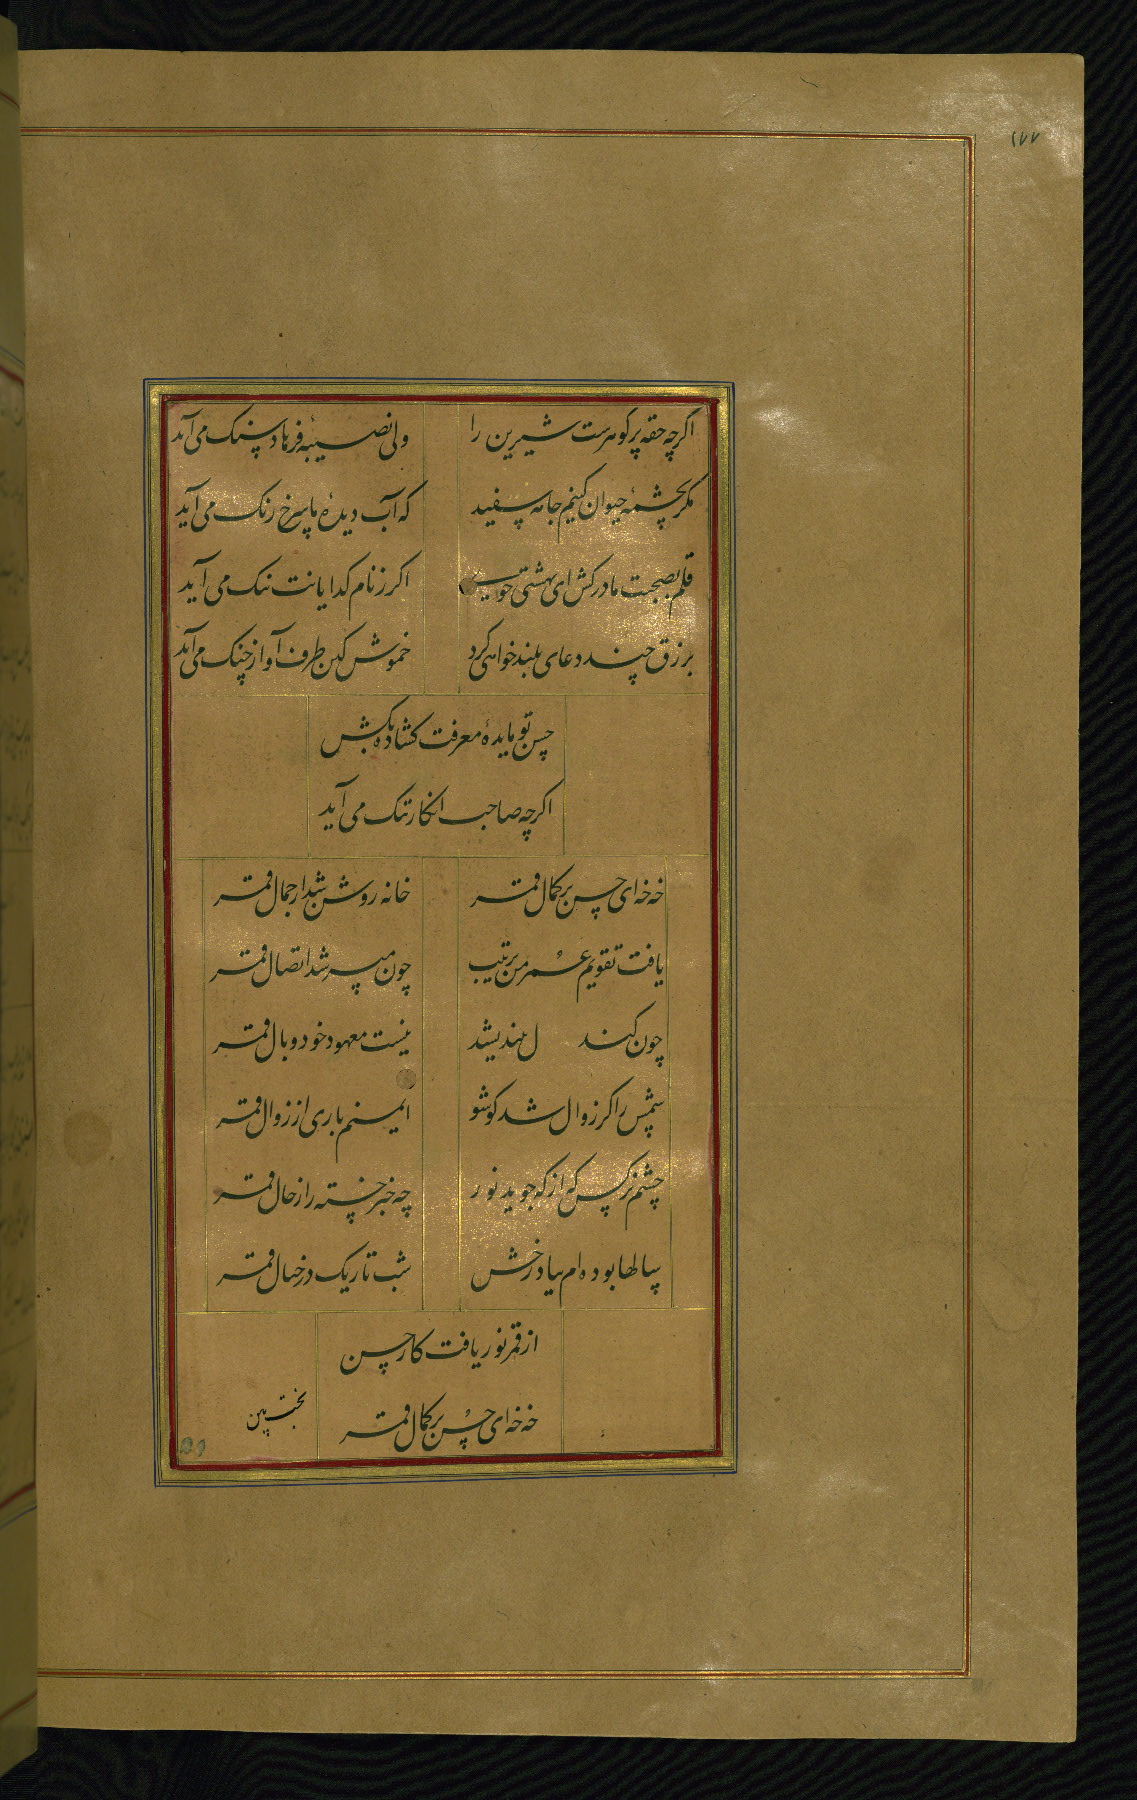 ۱۷۷
اکرچه حقه پر کوهرست شیرین را ولی نصیبۀ فرهاد سنک می‌آید
مکر بچشمۀ حیوان کنیم جامه سفید که آب دیدۀ ما سرخ رنک می‌آید
قلم بصحبت ما درکش ای بهشتی اکر ز نام کدایانت ننک می‌آید
برزق چند دعای بلند خواهی کرد خموش کین طرف آواز چنک می‌آید
حسن تو مایدۀ معرفت کشاده بکش
اکرچه صاحب انکار تنک می‌آید
خه خه ای حسن برکمال قمر خانه روشن شد از جمال قمر
یافت تقویم عمر من ترتیب چون میسر شد اتصال قمر
چون کند ل نهندیشد نیست معهود خود وبال قمر
شمس را کر زوال شد کو شو ایمنم باری از زوال قمر
چشم نرکس که از که جوید نور چه خبر خسته را ز حال قمر
سالها بوده‌ام بیاد رخش شب تاریک در خیال قمر
از قمر نور یافت کار حسن
خه خه ای حسن برکمال قمر
بخت بین